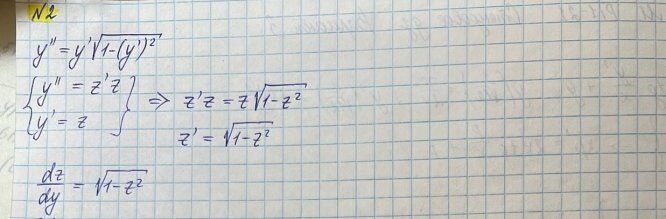 №2
y'' = y'√(1-(y')²)
{ y'' = z'z
y' = z } => z'z = z√(1-z²)
z' = √(1-z²)
dz/dy = √(1-z²)